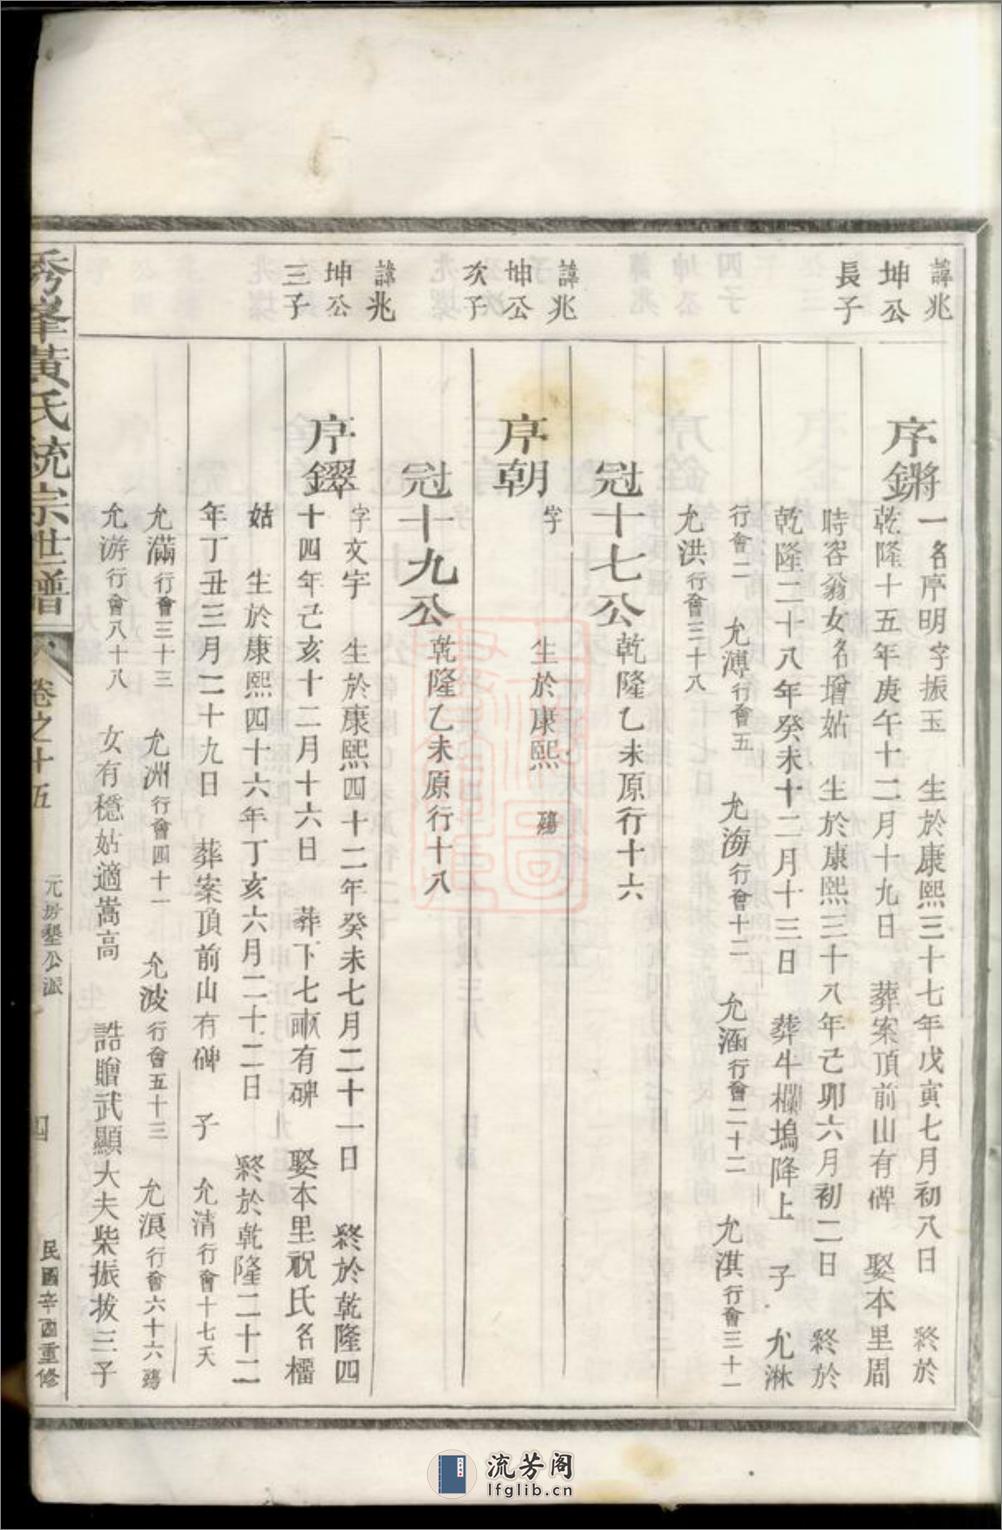 諱兆
坤公
長子
序鏘
一名序明字振玉 生於康熙三十七年戊寅七月初八日 終於
乾隆十五年庚午十二月十九日 葬案頂前山有碑 娶本里周
時容翁女名增姑 生於康熙三十八年己卯六月初二日 終於
乾隆二十八年癸未十二月十三日 葬牛欄塢降上 子 允淋
行會二 允溥行會五 允海行會十二 允涵行會二十二 允淇行會三十一
允洪行會三十八
冠十七公乾隆乙未原行十六
諱兆
坤公
次子
序朝
字 生於康熙 殤
冠十九公乾隆乙未原行十八
諱兆
坤公
三子
序鐸
字文宇 生於康熙四十二年癸未七月二十一日 終於乾隆四
十四年己亥十二月十六日 葬下七畝有碑 娶本里祝氏名橊
姑 生於康熙四十六年丁亥六月二十二日 終於乾隆二十二
年丁丑三月二十九日 葬案頂前山有碑 子 允清行會十七夭
允滿行會三十三 允洲行會四十一 允波行會五十三 允浪行會六十六殤
允游行會八十八 女有穩姑適嵩高 誥贈武顯大夫柴振拔三子
秀峯黃氏統宗世譜 卷之十五 元房墾公派 四 民國辛酉重修
流芳阁
lfglib.cn